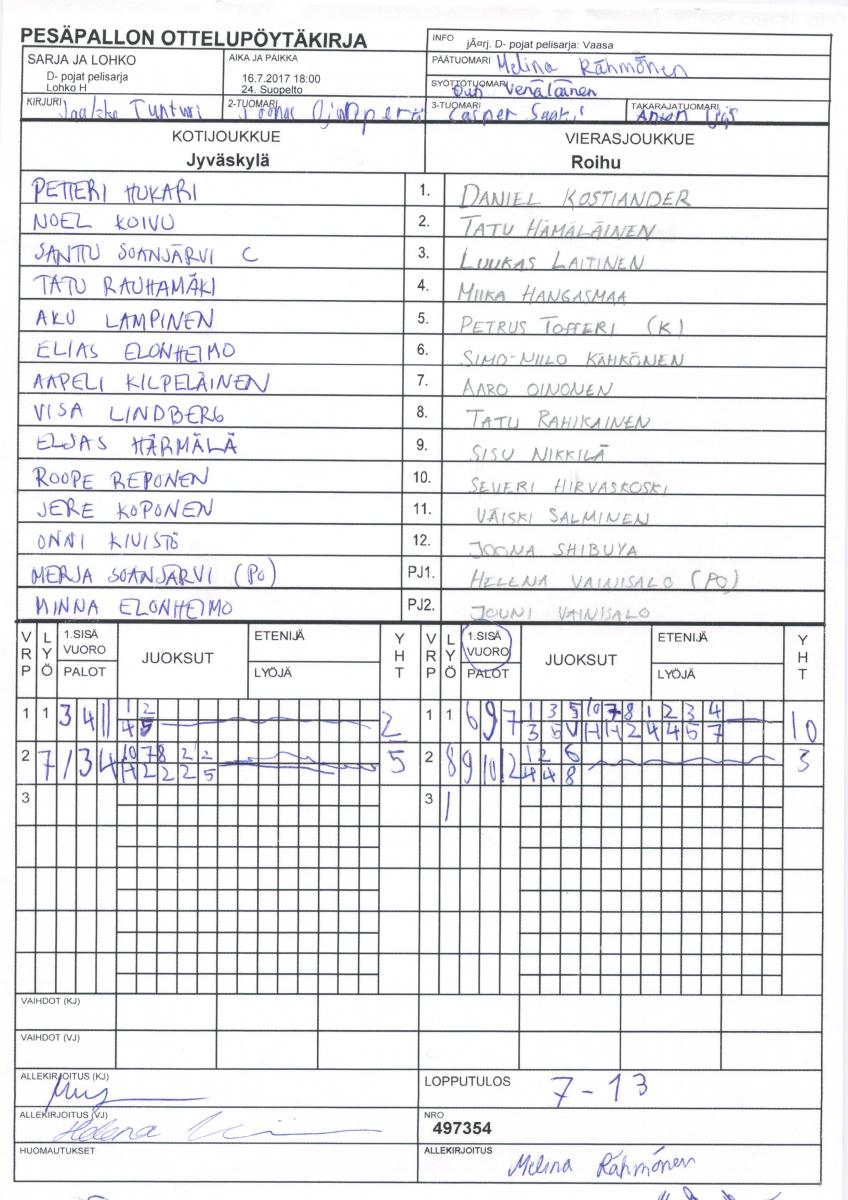 PESÄPALLON OTTELUPÖYTÄKIRJA
INFO jÃ¤rj. D- pojat pelisarja: Vaasa
SARJA JA LOHKO
D- pojat pelisarja
Lohko H
AIKA JA PAIKKA
16.7.2017 18:00
24. Suopelto
PÄÄTUOMARI Melina Rähmönen
SYÖTTÖTUOMARI Venäläinen
KIRJURI Jaakko Tunturi
2-TUOMARI Joonas
3-TUOMARI Casper
TAKARAJATUOMARI Anton
KOTIJOUKKUE
Jyväskylä
VIERASJOUKKUE
Roihu
PETTERI HUKARI 1. DANIEL KOSTIANDER
NOEL KOIVU 2. TATU HÄMÄLÄINEN
SANTTU SOANJÄRVI C 3. LUUKAS LAITINEN
TATU RAUHAMÄKI 4. MIIKA HANGASMAA
AKU LAMPINEN 5. PETRUS TOFFERI (K)
ELIAS ELONHEIMO 6. SIMO-NIILO KÄHKÖNEN
AAPELI KILPELÄINEN 7. AARO OINONEN
VISA LINDBERG 8. TATU RAHIKAINEN
ELJAS HÄRMÄLÄ 9. SISU NIKKILÄ
ROOPE REPONEN 10. SEVERI HIRVASKOSKI
JERE KOPONEN 11. VÄISKI SALMINEN
ONNI KIVISTÖ 12. JOONA SHIBUYA
MERJA SOANJÄRVI (PO) PJ1. HELENA VAINISALO (PO)
MINNA ELONHEIMO PJ2. JOUNI VAINISALO
VRP LYÖ 1.SISÄ VUORO PALOT JUOKSUT ETENIJÄ LYÖJÄ YHT VRP LYÖ 1.SISÄ VUORO PALOT JUOKSUT ETENIJÄ LYÖJÄ YHT
1 1 3 4 11 1 2 2 1 1 6 9 7 1 3 5 10 7 8 1 2 3 4 10
4 5 3 5 V H H 2 4 4 5 7
2 7 1 3 4 10 7 8 2 2 5 2 8 9 10 12 1 2 6 3
H 2 2 2 5 4 4 8
3 3 1
VAIHDOT (KJ)
VAIHDOT (VJ)
ALLEKIRJOITUS (KJ)
LOPPUTULOS 7-13
ALLEKIRJOITUS (VJ) Helena
NRO
497354
HUOMAUTUKSET
ALLEKIRJOITUS Melina Rähmönen